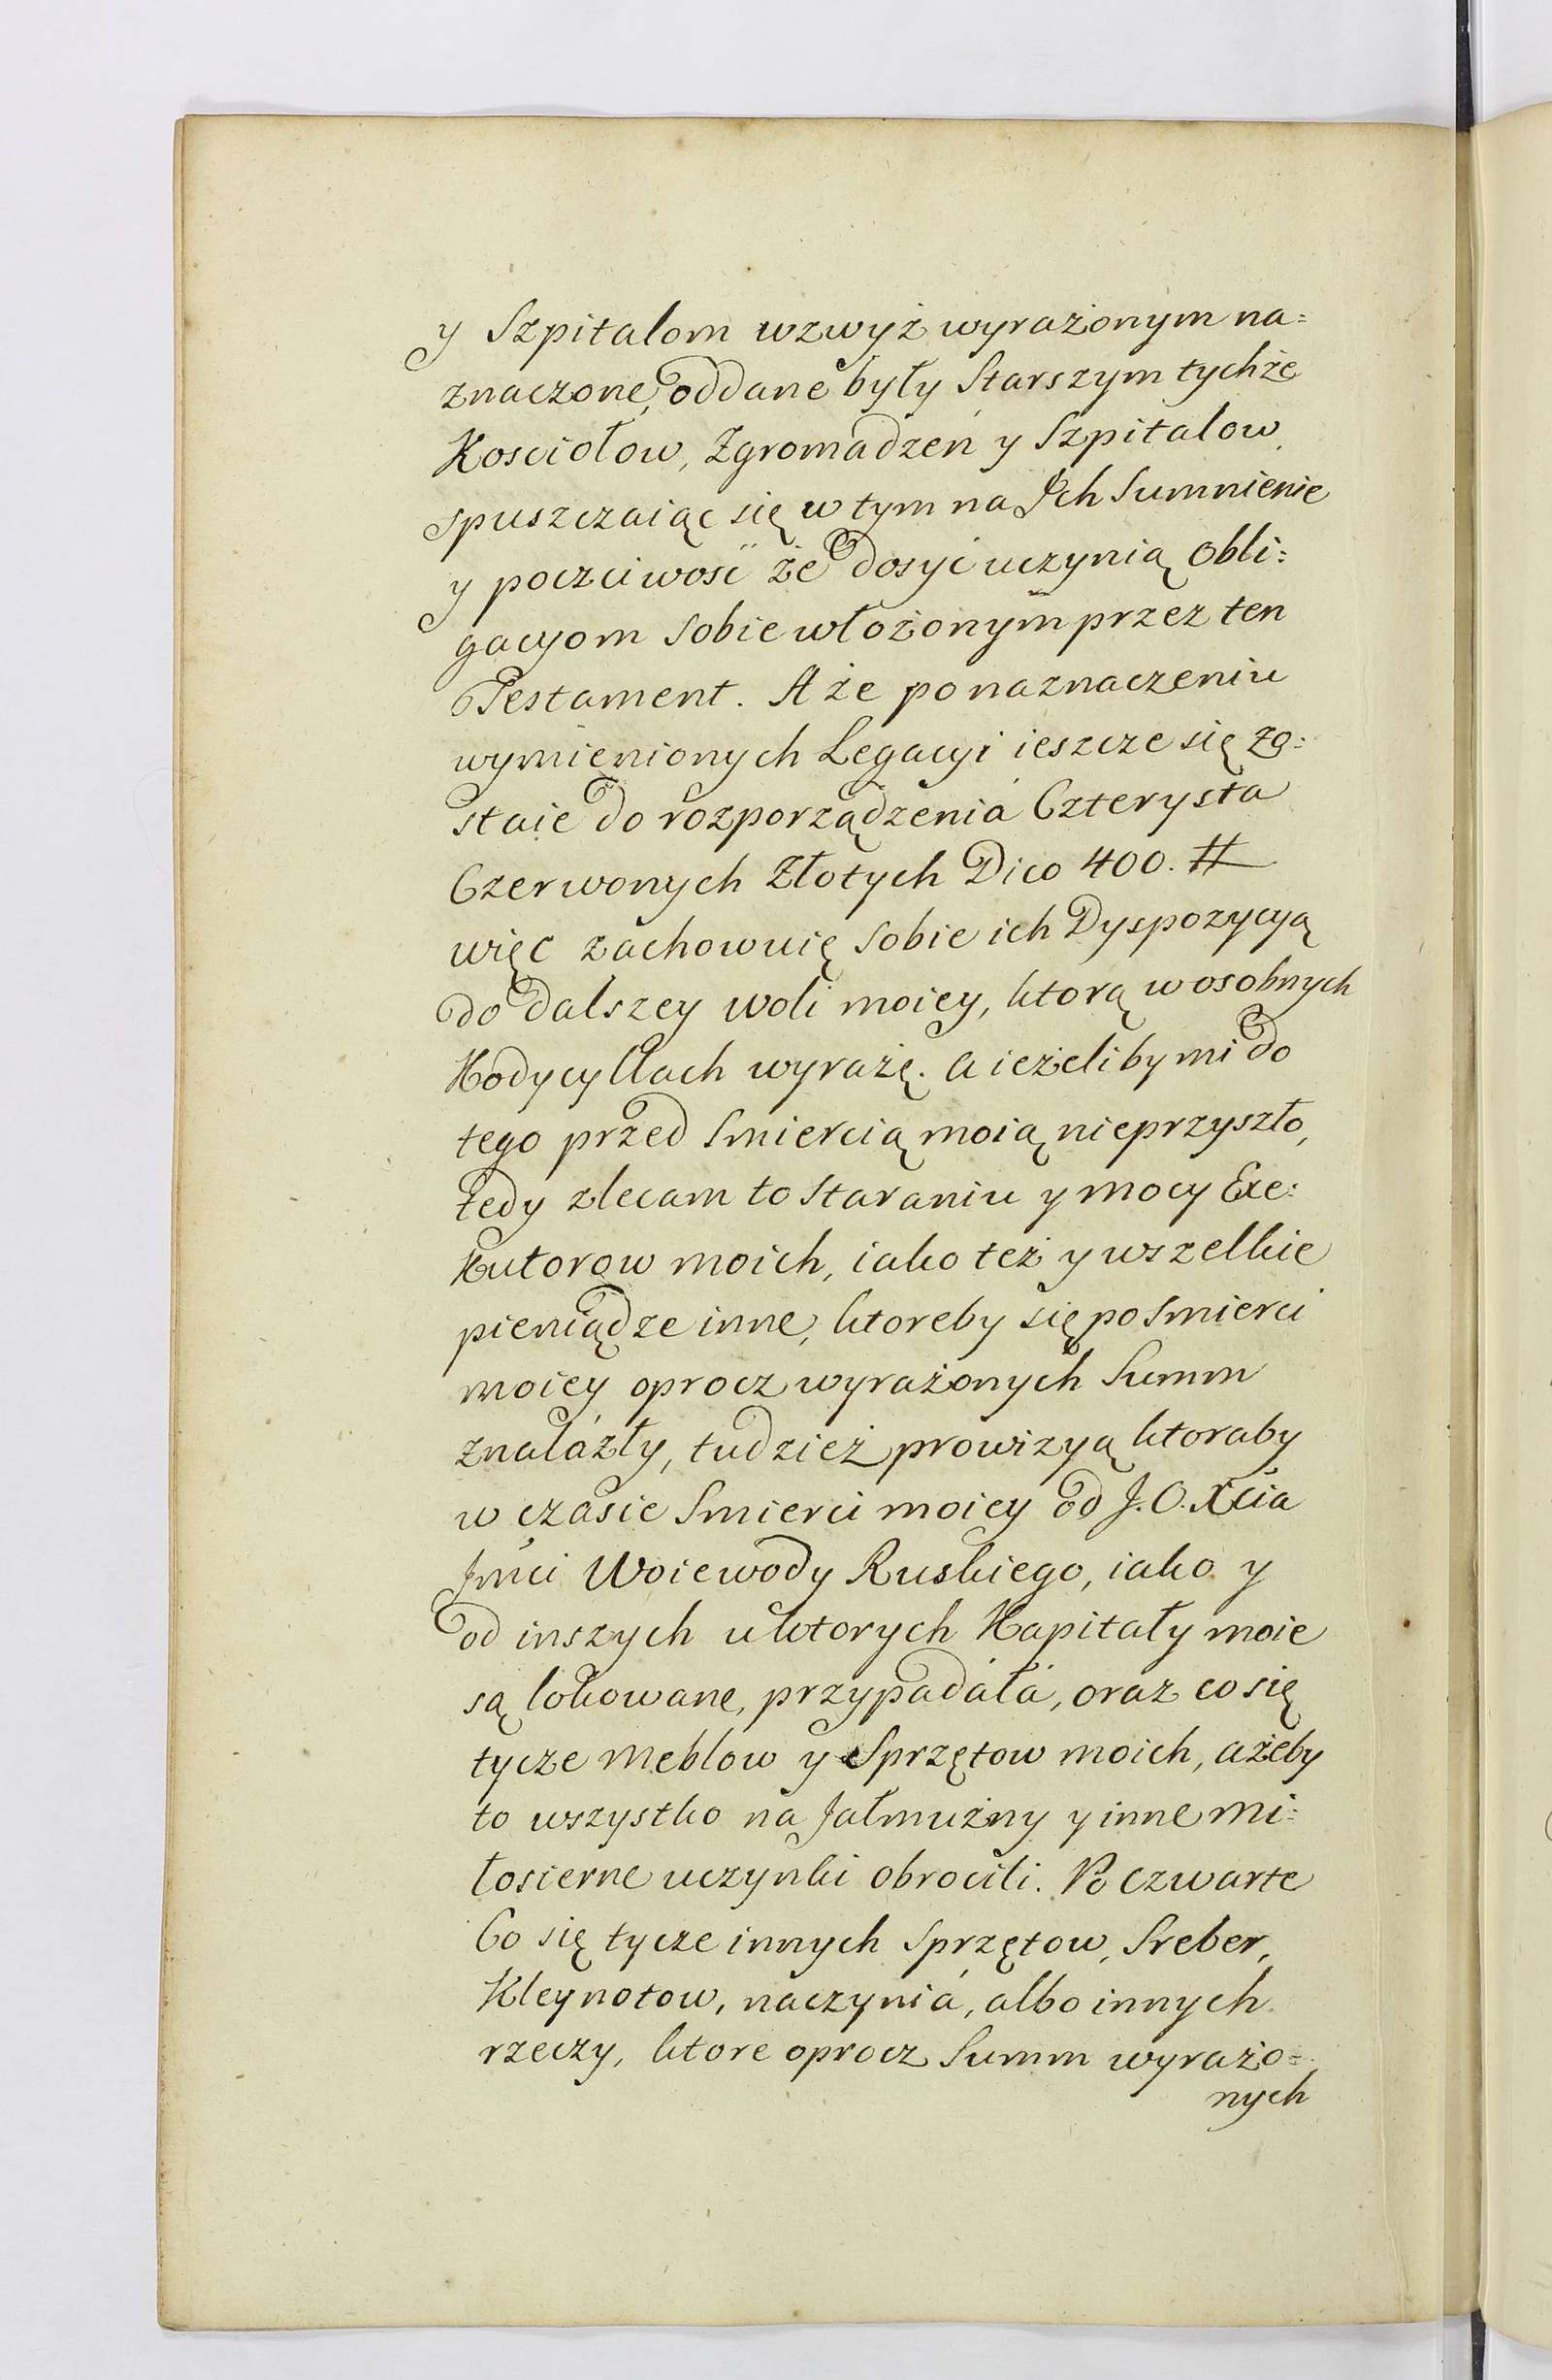 y Szpitalom wzwyż wyrażonym na=
znaczone, oddane były Starszym tychże
Kosciołow, Zgromadzeń y Szpitalow,
spuszczaiąc się w tym na Ich Sumnienie
y poczciwość że dosyć uczynią obli=
gacyom sobie włożonym przez ten
Testament. A że po naznaczeniu
wymienionych Legacyi ieszcze się zo=
staie do rozporządzenia Czterysta
Czerwonych Złotych Dico 400. #
więc zachowuię sobie ich Dyspozycyą
do dalszey woli moiey, ktorą w osobnych
Kodycyllach wyrażę. a ieżeliby mi do
tego przed Smiercią moią nieprzyszło,
tedy zlecam to staraniu y mocy Exe=
kutorow moich, iako też y wszelkie
pieniądze inne, ktoreby się po smierci
moiey oprocz wyrażonych Summ
znalázły, tudzież prowizyą ktoraby
w czasie Smierci moiey od J. O. Xcia
Jmci Woiewody Ruskiego, iako y
od inszych u ktorych Kapitały moie
są lokowane, przypadáłá, oraz co się
tycze Meblow y Sprzętow moich, ażeby
to wszystko na Jałmużny y inne Mi=
łosierne uczynki obrocili. Po czwarte
Co się tycze innych Sprzętow, Sreber,
Kleynotow, naczyniá, albo innych
rzeczy, ktore oprocz Summ wyrażo=
nych